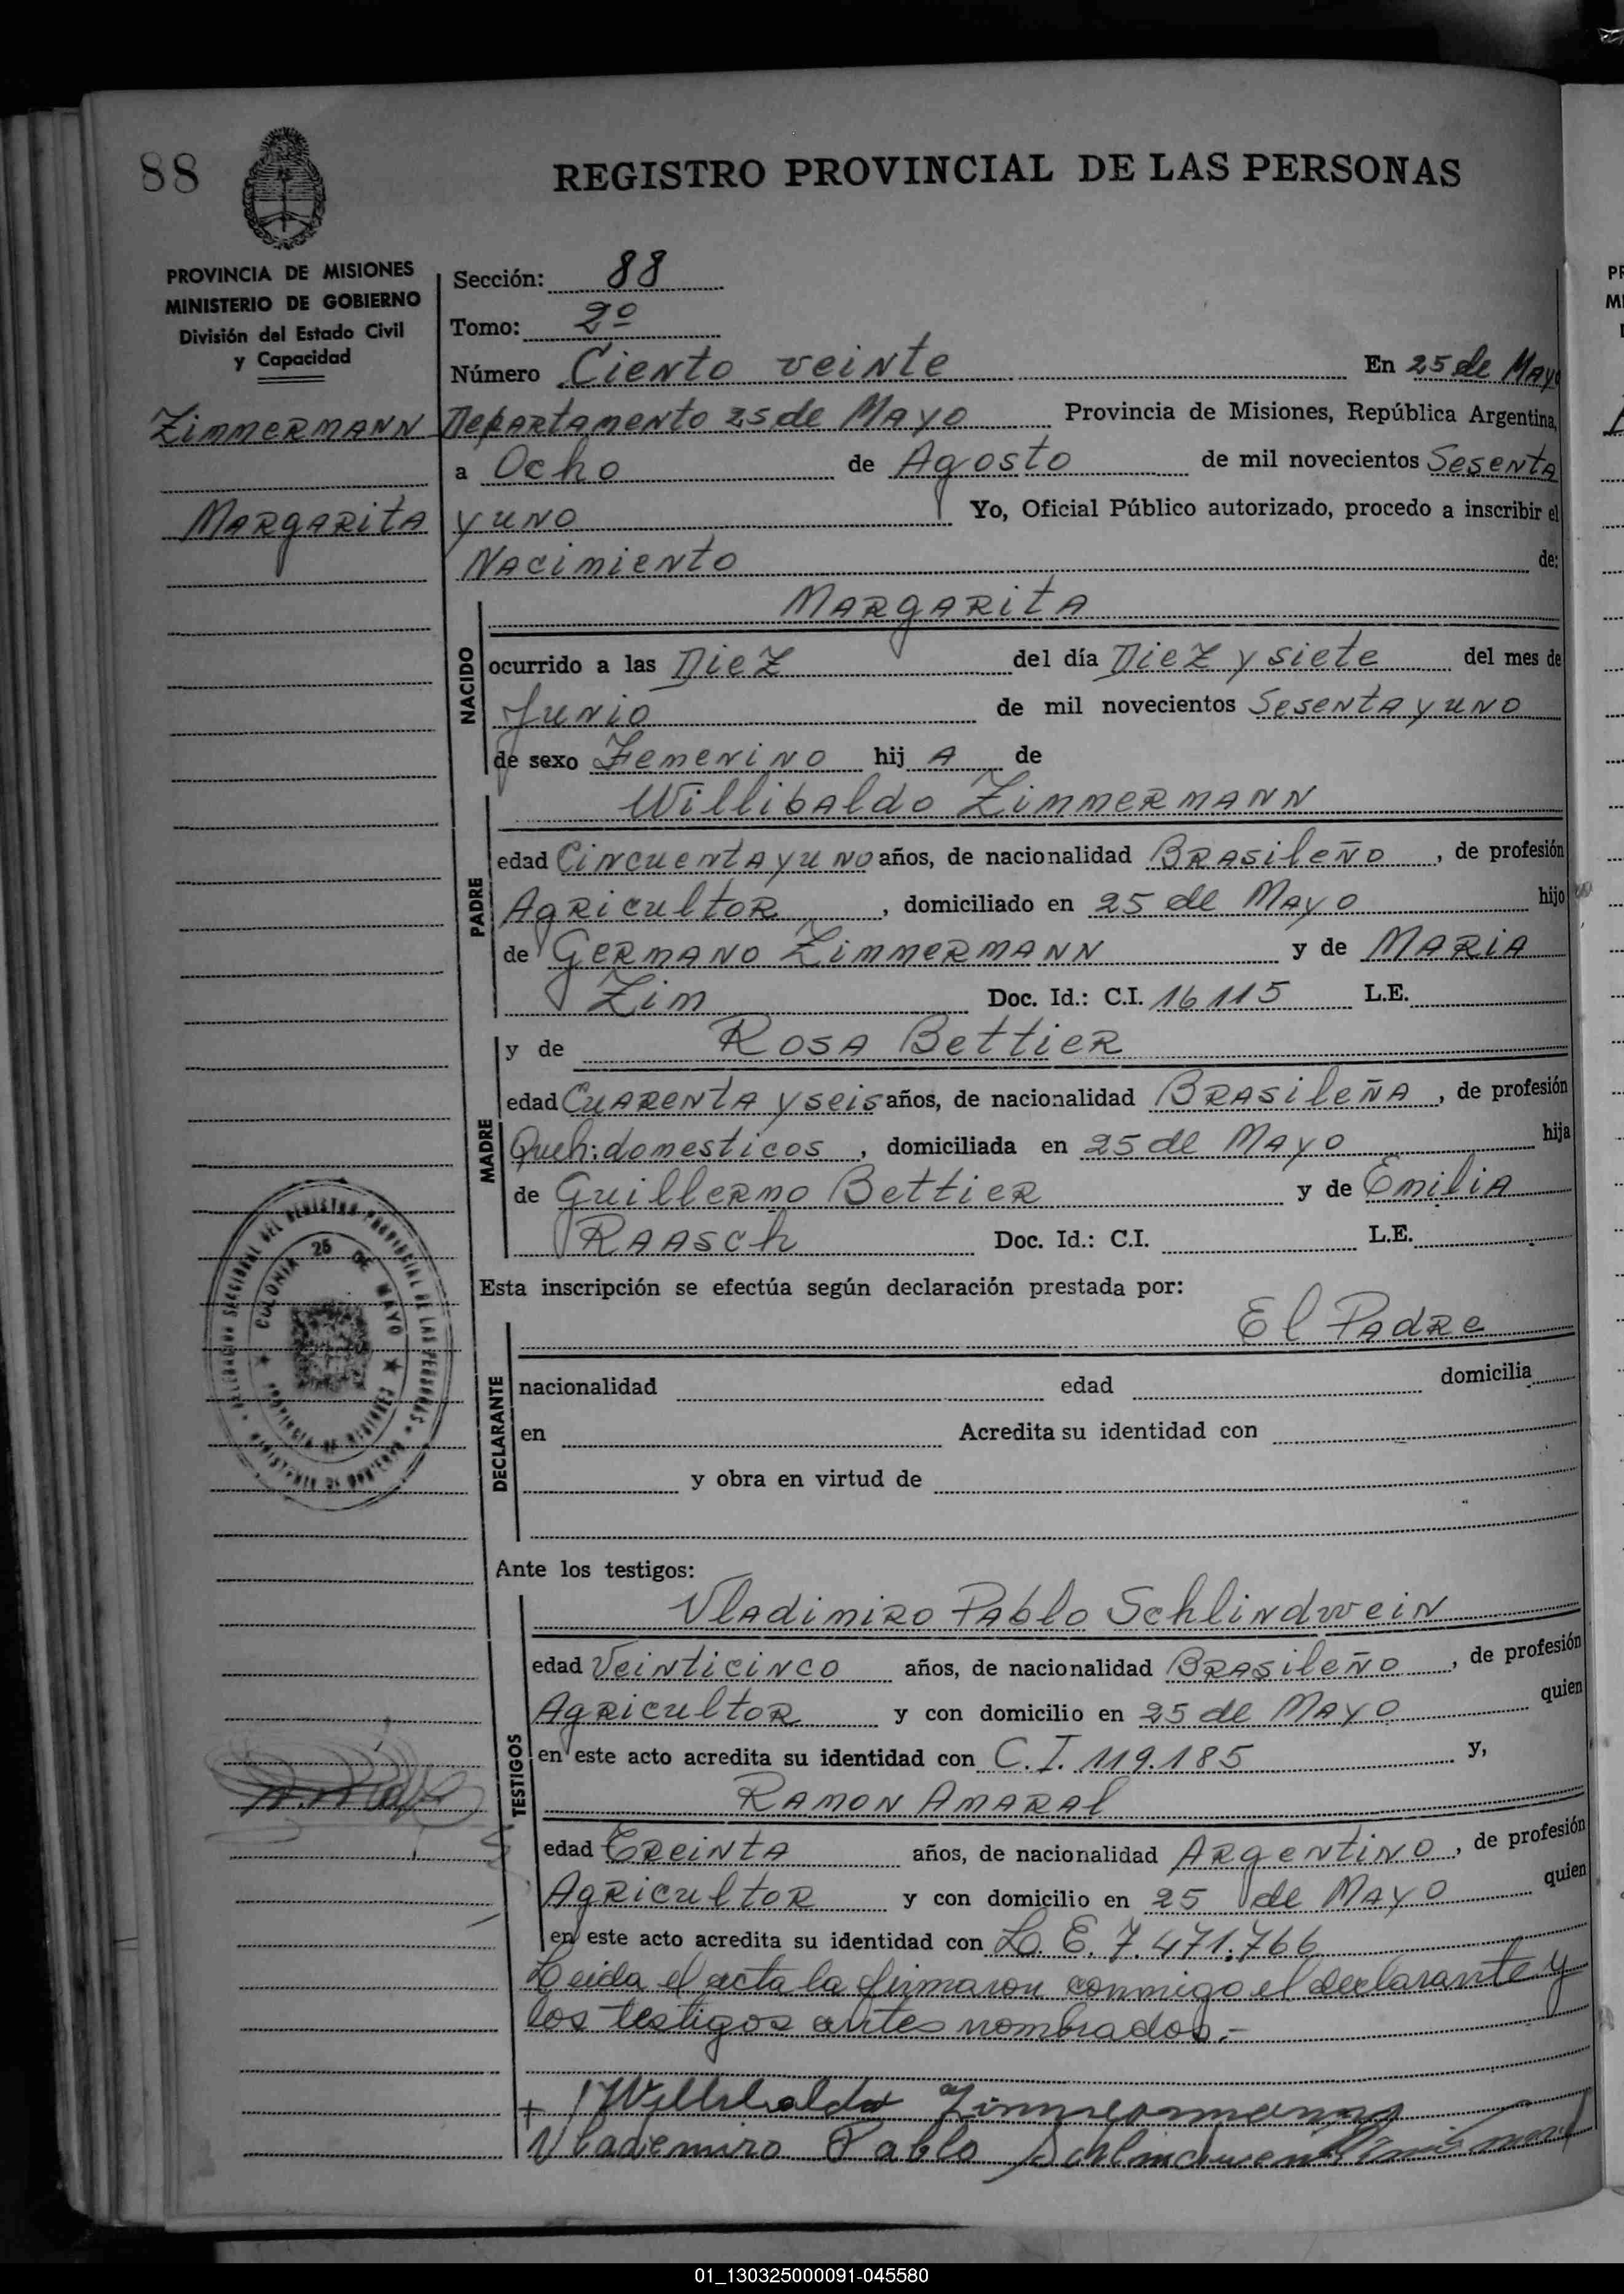 88
REGISTRO PROVINCIAL DE LAS PERSONAS
PROVINCIA DE MISIONES
MINISTERIO DE GOBIERNO
División del Estado Civil
y Capacidad
Zimmermann
Margarita
Sección: 88
Tomo: 2º
Número Ciento veinte En 25 de Mayo
Departamento 25 de Mayo Provincia de Misiones, República Argentina,
a Ocho de Agosto de mil novecientos Sesenta
y uno Yo, Oficial Público autorizado, procedo a inscribir el
Nacimiento de:
NACIDO
Margarita
ocurrido a las Diez del día Diez y siete del mes de
Junio de mil novecientos Sesenta y uno
de sexo Femenino hij A de
PADRE
Willibaldo Zimmermann
edad Cincuenta y uno años, de nacionalidad Brasileño, de profesión
Agricultor, domiciliado en 25 de Mayo hijo
de Germano Zimmermann y de Maria
Zim Doc. Id.: C.I. 16115 L.E.
MADRE
y de Rosa Bettier
edad Cuarenta y seis años, de nacionalidad Brasileña, de profesión
Queh: domesticos, domiciliada en 25 de Mayo hija
de Guillermo Bettier y de Emilia
Raasch Doc. Id.: C.I. L.E.
Esta inscripción se efectúa según declaración prestada por:
DECLARANTE
El Padre
nacionalidad edad domicilia
en Acredita su identidad con
y obra en virtud de
COLONIA 25 DE MAYO
PROVINCIA DE MISIONES
Ante los testigos:
TESTIGOS
Vladimiro Pablo Schlindwein
edad Veinticinco años, de nacionalidad Brasileño, de profesión
Agricultor y con domicilio en 25 de Mayo quien
en este acto acredita su identidad con C.I. 119.185 y,
Ramon Amaral
edad Treinta años, de nacionalidad Argentino, de profesión
Agricultor y con domicilio en 25 de Mayo quien
en este acto acredita su identidad con L.E. 7.471.766
Leida el acta la firmaron conmigo el declarante y
los testigos antes nombrados.-
+ Willibaldo Zimmermann
Vlademiro Pablo Schlindwein
01_130325000091-045580